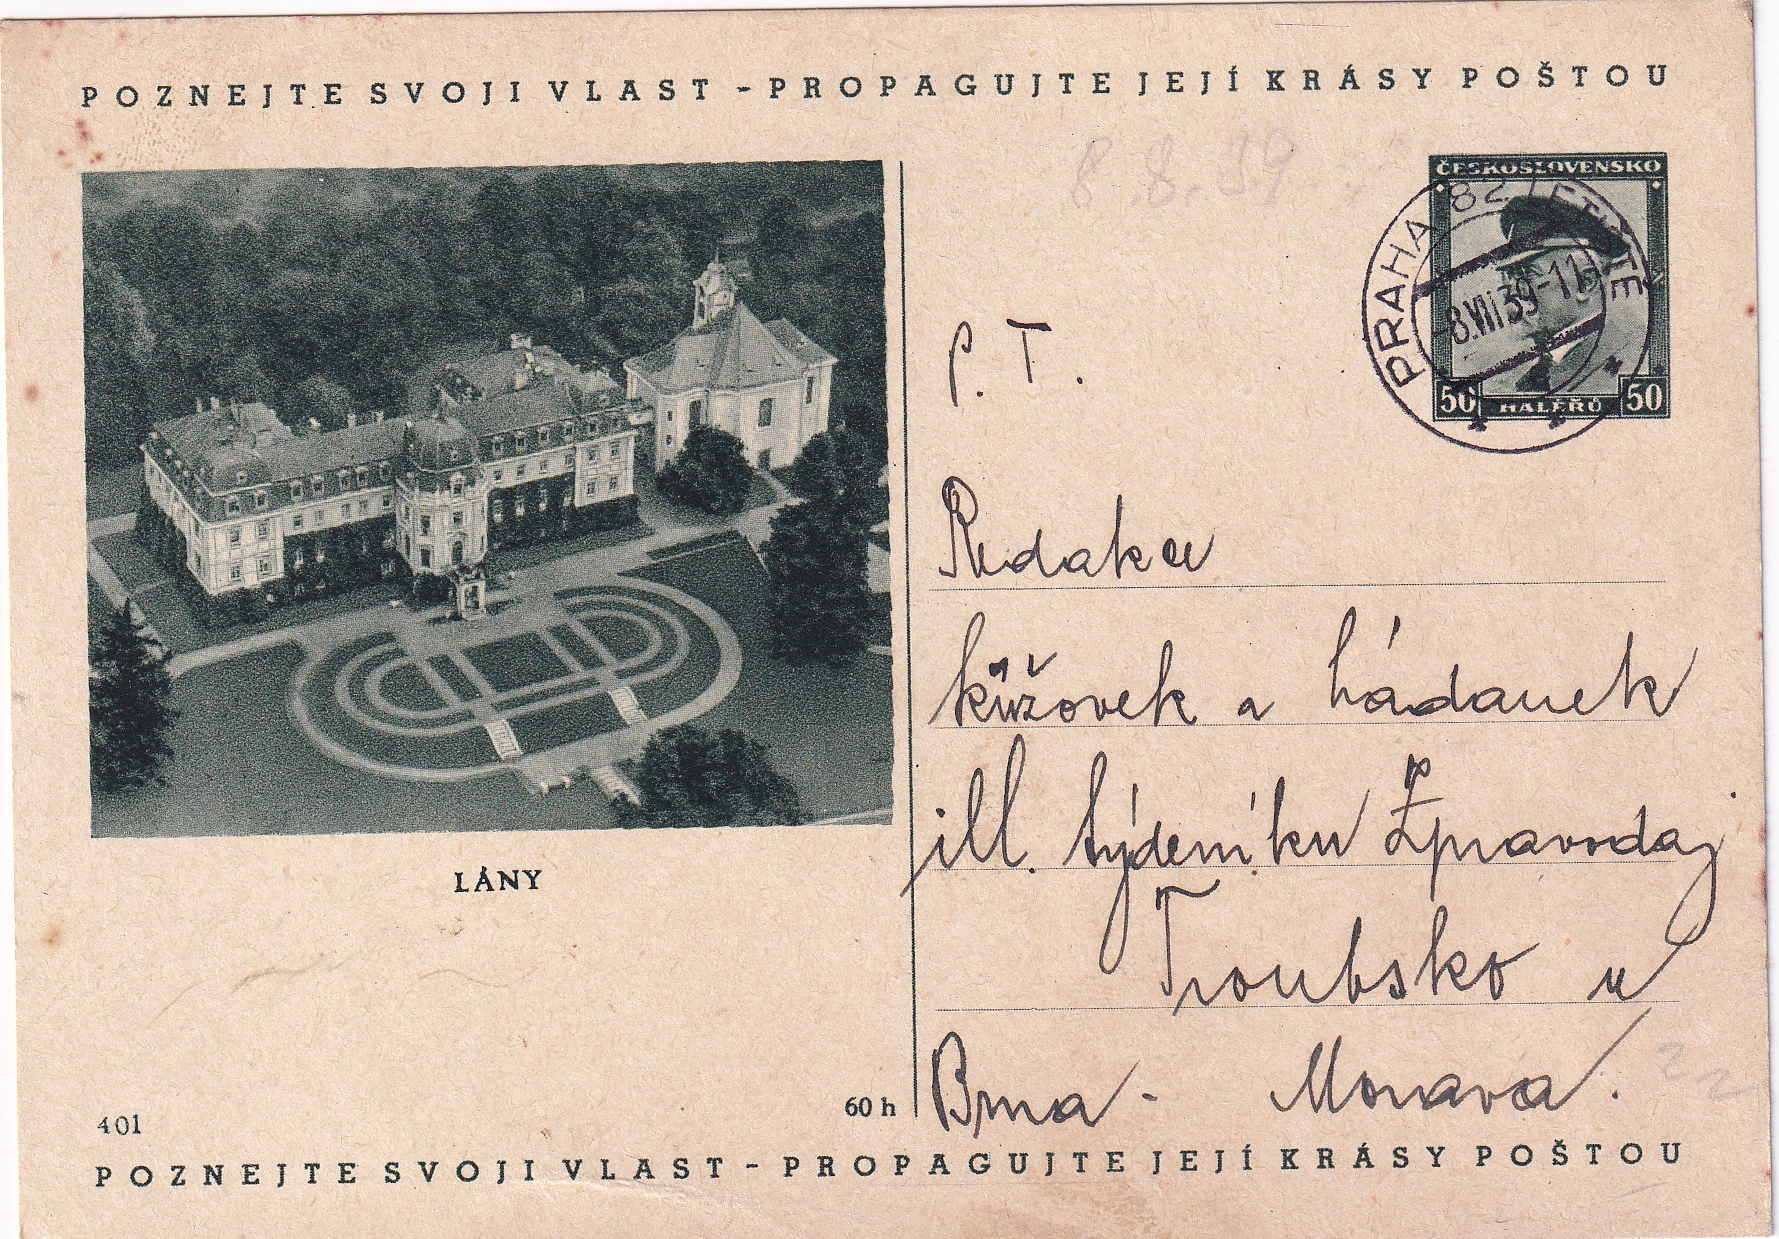 POZNEJTE SVOJI VLAST - PROPAGUJTE JEJÍ KRÁSY POŠTOU
8.8.39
ČESKOSLOVENSKO
PRAHA 82
8.VII 39-11
50 HALÉŘŮ 50
P. T.
Redakce
křížovek a hádanek
ill. týdeníku Zpravodaj
Troubsko u
Brna - Morava.
LÁNY
401
60 h
POZNEJTE SVOJI VLAST - PROPAGUJTE JEJÍ KRÁSY POŠTOU